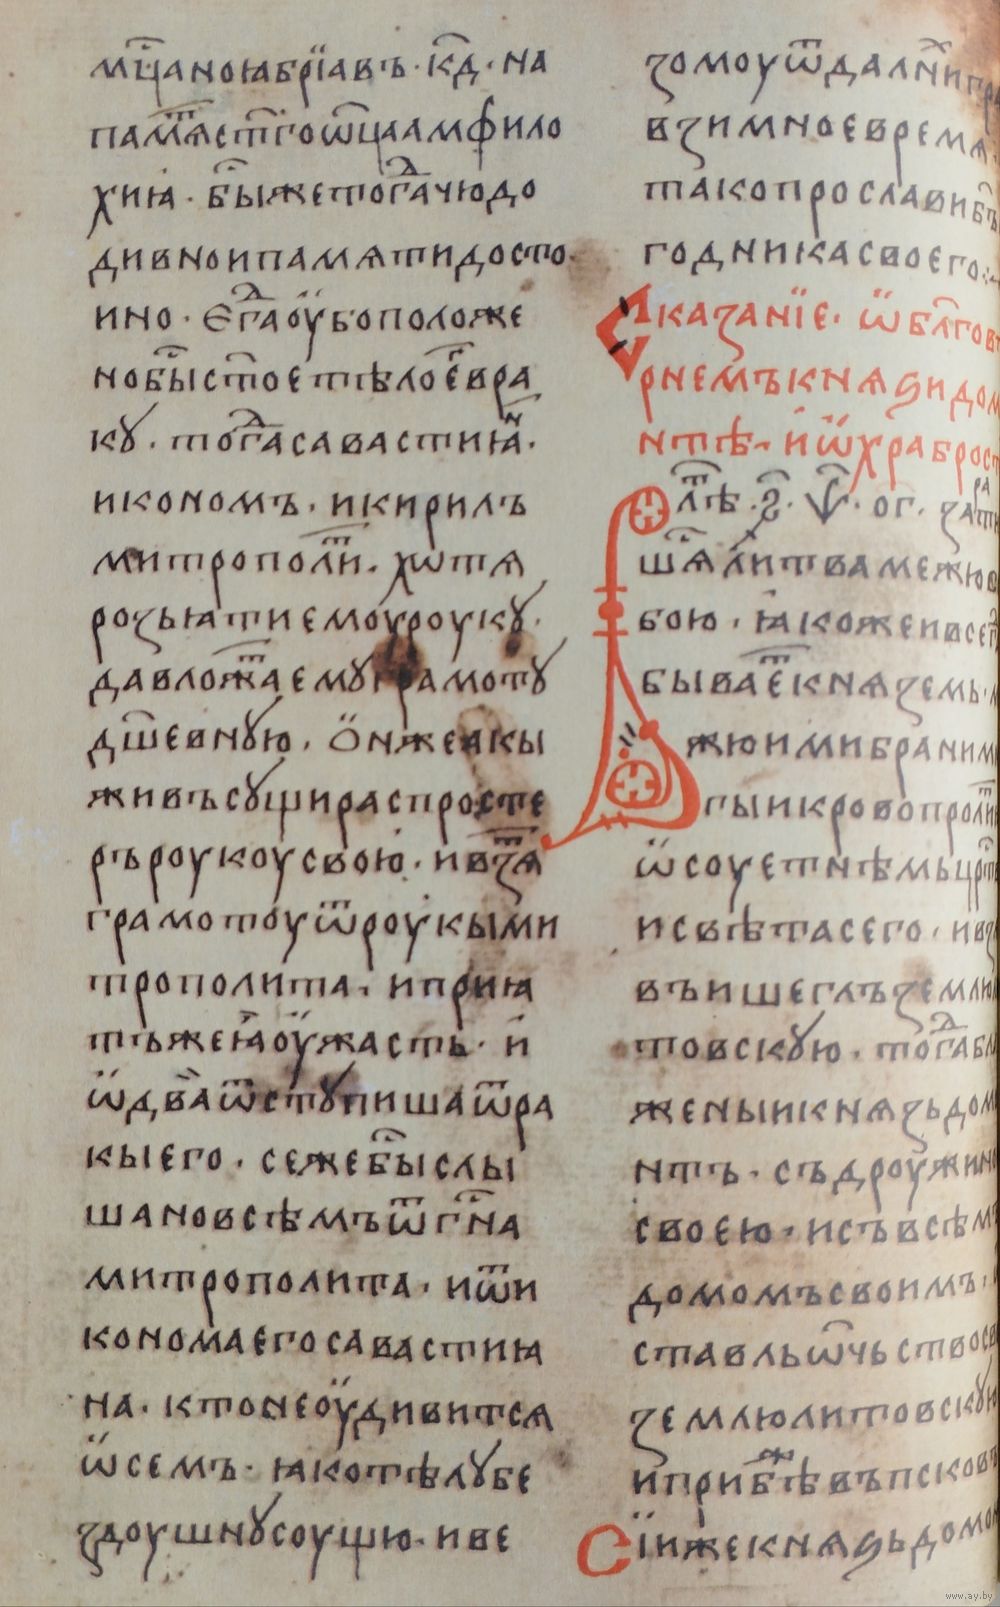 мц҃а ноꙗбрїа въ · к҃д · на
памⷮѧ ст҃го ѿца амфило
хиꙗ · бы҃ же тогⷣа чюдо
дивно и памѧти досто
ино · єгⷣа оубо положе
но бы҃ ст҃ое тѣло е҃ в ра
ку · тогⷣа савастиꙗⷩ ·
икономъ · и кирилъ
митрополиⷮ · хотѧ
розъꙗти ему роуку ·
да вложаⷮ ему грамоту
дш҃евную · ѻн же акы
живъ сущи распросте
ръ роукоу свою · и взѧⷮ
грамотоу ѿ роукы ми
трополита · и приꙗ
тъ же ꙗ оужасть · и
ѡ два ѿступиша ѿ ра
кы его · се же бы҃ слы
шано всѣмъ ѿ г҃на
митрополита · и ѿ и
конома его савастиꙗ
на · кто не оудивитсѧ
ѡ семъ · ꙗко тѣлу бе
здоушну соущю · и ве
зомоу ѿ далниⷯ
в зимное времѧ
тако прослави б҃ъ
годника своего
Сказанїе · ѡ бл҃гов
рнемъ кнѧѕи дом
нтѣ · и ѡ храброст
В лⷮѣ · ѕ҃ · ѱ҃ · ог ·
шасѧ литва межю
бою · ꙗкоже и всегⷣ
бываеⷮ кнѧземъ ·
жю ими брани м
гы и кровопролиⷮ
ѡ соуетнѣмь црⷭтв
и свѣта сего ·
въишеглъ землю
товскую · тогⷣа бл
женыи кнѧзь дом
нтъ · съ дроужин
своею · и съ всѣм
домомъ своимъ ·
ставль ѿчьство св
землю литовскую
и прибѣⷤ въ псковъ
Сїи же кнѧѕь домо
www.ay.by